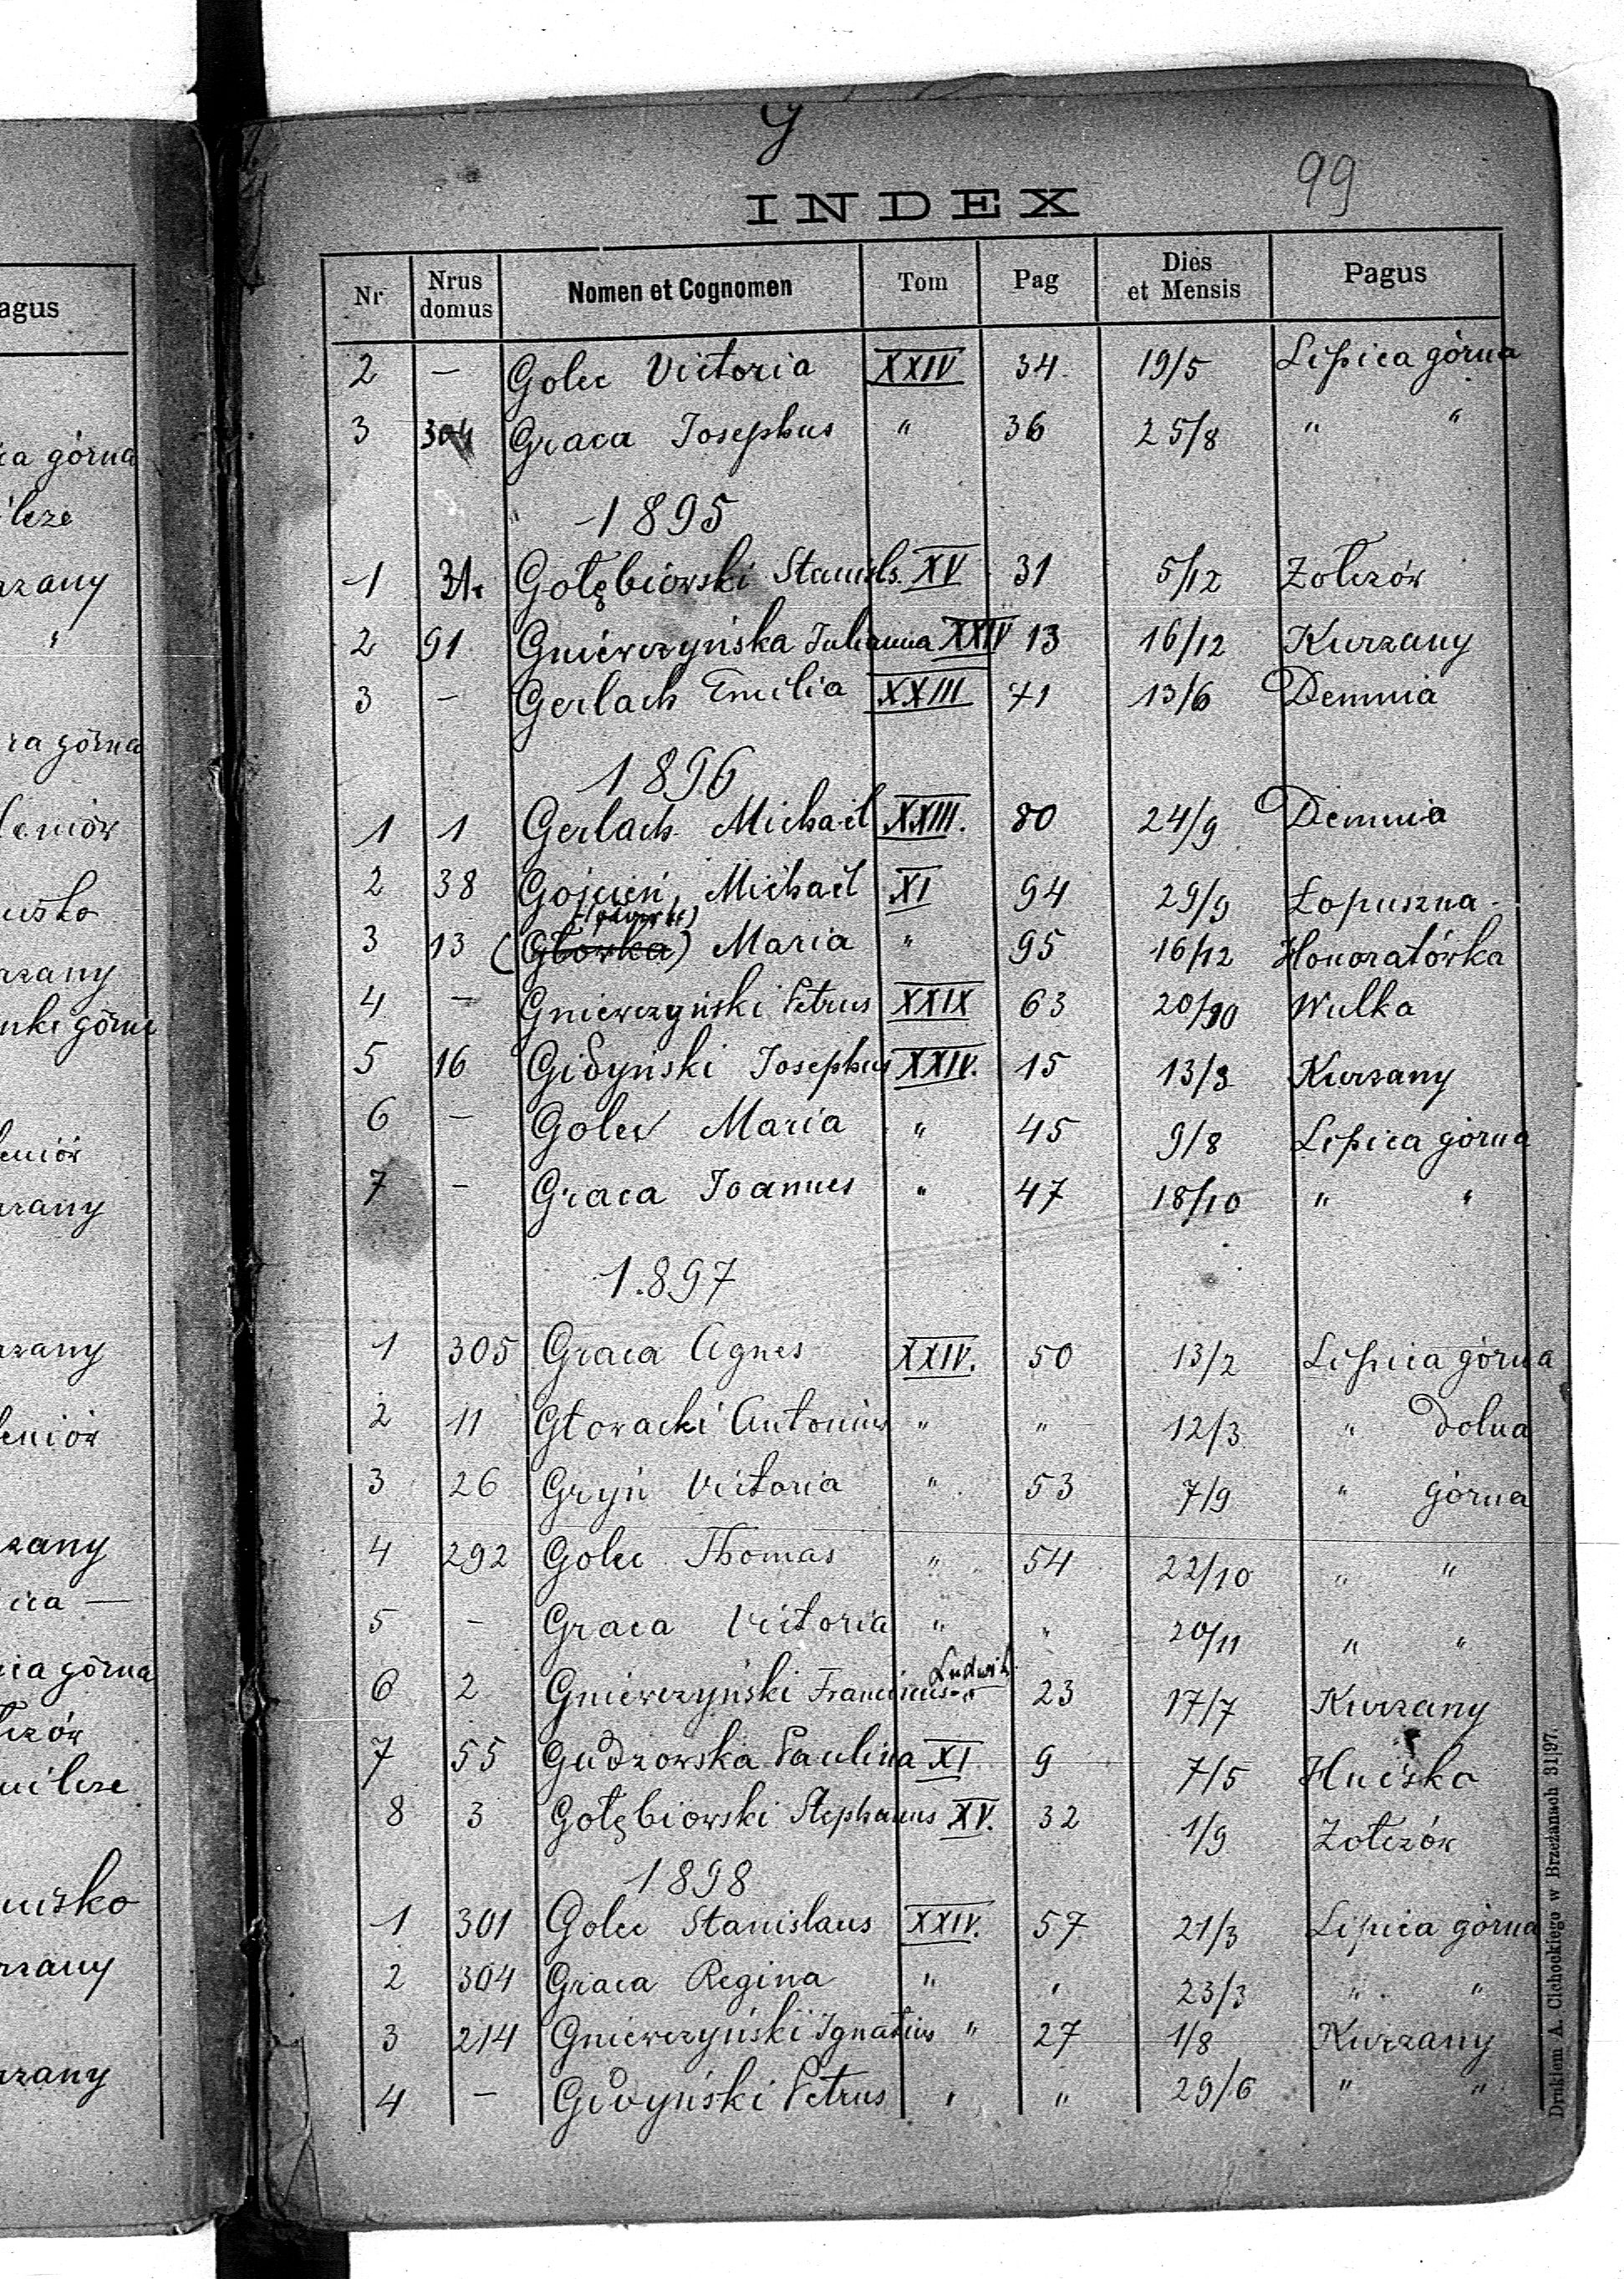 G
99
INDEX
Nr Nrus domus Nomen et Cognomen Tom Pag Dies et Mensis Pagus
2 — Golec Victoria XXIV 34. 19/5 Lipica górna
3 304 Graca Josephus " 36 25/8 " "
1895
1 31. Gołębiowski Stanisls. XV 31 5/12 Żołczów
2 91 Gniewczyńska Julianna XXIV 13 16/12 Kurzany
3 — Gerlach Emilia XXIII 71 13/6 Demnia
1896
1 1 Gerlach Michael XXIII. 80 24/9 Demnia
2 38 Gojcień, Michael XI 94 29/9 Łopuszna
3 13 (Głowka) Maria " 95 16/12 Honoratówka
4 — Gniewczyński Petrus XXIX 63 Wulka
5 16 Gidyński Josephus XXIV. 15 13/8 Kurzany
6 — Golec Maria " 45 9/8 Lipica górna
7 — Graca Joannes " 47 18/10 " "
1897
1 305 Graca Agnes XXIV. 50 13/2 Lipica górna
2 11 Głowacki Antonius " " 12/3 " dolna
3 26 Gryń Victoria " 53 7/9 " górna
4 292 Golec Thomas " 54 22/10 " "
5 — Graca Victoria " " 20/11 " "
Ludwik
6 2 Gniewczyński Franciscus " 23 17/7 Kurzany
7 55 Gudzowska Paulina XI 9 7/5 Huciska
8 3 Gołębiowski Stephanus XV. 32 1/9 Żołczów
1898
1 301 Golec Stanislaus XXIV. 57 21/3 Lipica górna
2 304 Graca Regina " " 23/3 " "
3 214 Gniewczyński Ignatius " 27 1/8 Kurzany
4 — Gidyński Petrus " " 29/6 " "
Drukiem A. Cichockiego w Brzeżanach 31|97.
agus
ica górna
ilcze
rzany
"
ra górna
leniów
rzany
nki górne
leniów
rzany
rzany
leniów
rzany
ica —
ica górna
łczów
milcze
nisko
rzany
rzany